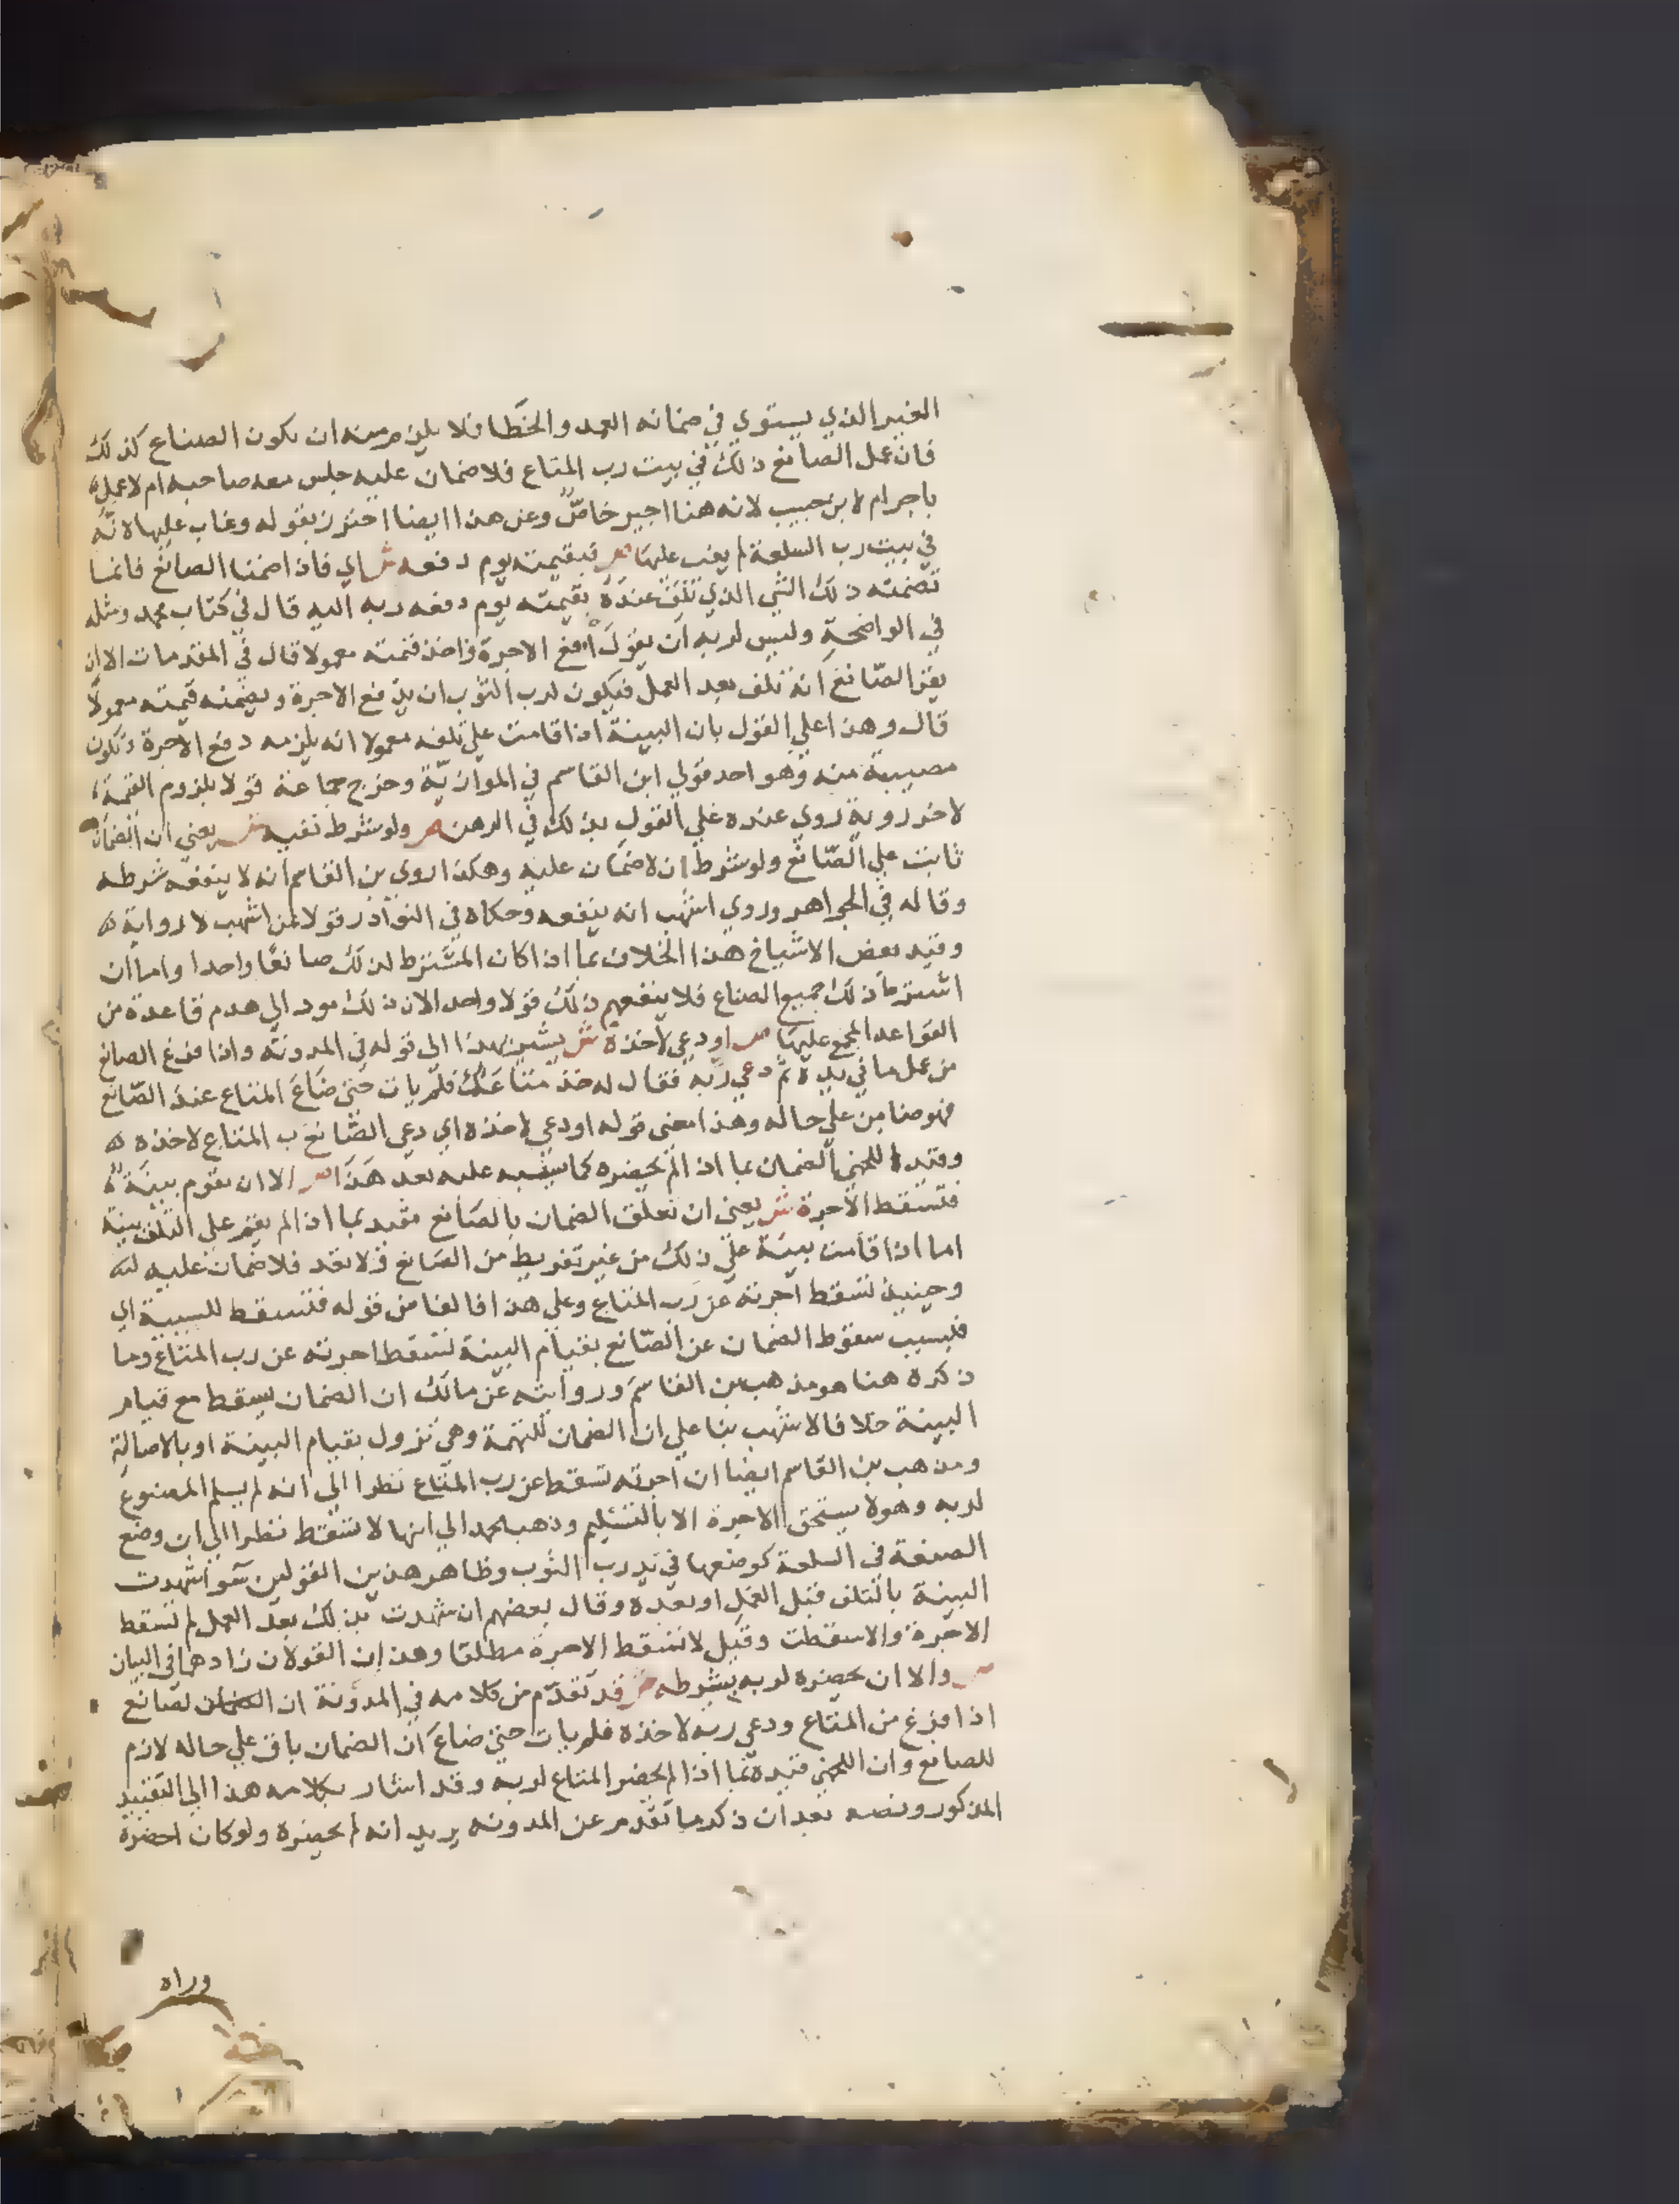 الغير الذي يستوي في ضمانه العمد والخطا فلا يلزم منه ان يكون الصناع كذلك
فان عمل الصانغ ذلك في بيت رب المتاع فلا ضمان عليه جلس معه صاحبه ام لا عمل
باجر ام لا بن حبيب لانه هنا اجير خاص وعن هذا ايضا احترز بقوله وغاب عليها لانه
في بيت رب السلعة لم يغب عليها ص فبقيمته يوم دفعه ش اي فاذا ضمنا الصانغ فانما
تضمنه ذلك الشي الذي تلف عنده بقيمته يوم دفعه ربه اليه قال في كتاب محمد ومثله
في الواضحة وليس لربه ان يقول ادفع الاجرة واخذ قيمته معمولا قال في المقدمات الا ان
يقر الصانغ انه تلف بعد العمل فيكون لرب الثوب ان يدفع الاجرة ويضمنه قيمته معمولا
قال وهذا علي القول بان البينة اذا قامت علي تلفه معمولا انه يلزمه دفع الاجرة وتكون
مصيبة منه وهو احد قولي ابن القاسم في الموازية وخرج جماعة قولا بلزوم القيمة
لاخر روية روي عنده علي القول بذلك في الرهن ص ولو شرط نفيه ش يعني ان الضمان
ثابت علي الصانغ ولو شرط ان لا ضمان عليه وهكذا روي بن القاسم انه لا ينفعه شرطه
وقاله في الجواهر وروي اشهب انه ينفعه وحكاه في النوادر قولا لمن اشهب لا رواية له
وقيد بعض الاشياخ هذا الخلاف بما اذا كان المشترط لذلك صانعا واحدا واما ان
اشترط ذلك جميع الصناع فلا ينفعهم ذلك قولا واحدا لان ذلك مود الي هدم قاعدة من
القواعد المجمع عليها ص او دعي لاخذه ش يشير بهذا الى قوله في المدونة واذا فرغ الصانع
من عمل ما في يده ثم دعي ربه فقال له خذ متاعك فلم يات حتى ضاع المتاع عند الصانع
فهو ضامن علي حاله وهذا معنى قوله او دعي لاخذه اي دعي الصانغ رب المتاع لاخذه
وقيده اللخمي الضمان بما اذا لم يحضره كما سينبه عليه بعد هذا ص الا ان تقوم بينة
فتسقط الاجرة ش يعني ان تعلق الضمان بالصانع مقيد بما اذا لم يقم علي التلف بينة
اما اذا قامت بينة علي ذلك من غير تفريط من الصانغ ولا تعد فلا ضمان عليه له
وحينيذ تسقط اجرته عن رب المتاع وعلي هذا فالفا من قوله فتسقط للسببية اي
فبسبب سقوط الضمان عن الصانع بقيام البينة تسقط اجرته عن رب المتاع وما
ذكره هنا هو مذهب بن القاسم وروايته عن مالك ان الضمان يسقط مع قيام
البينة خلافا لاشهب بنا علي ان الضمان للتهمة وهي تزول بقيام البينة او بالاصالة
ومذهب بن القاسم ايضا ان اجرته تسقط عن رب المتاع نظرا الى انه لم يسلم المصنوع
لربه وهو لا يستحق الاجرة الا بالتسليم وذهب محمد الي انها لا تسقط نظرا الي ان وضع
الصنعة في السلعة كوضعها في يد رب الثوب وظاهر هذين القولين سوا شهدت
البينة بالتلف قبل العمل او بعده وقال بعضهم ان شهدت بذلك بعد العمل لم تسقط
الاجرة والا سقطت وقيل لا تسقط الاجرة مطلقا وهذان القولان زادهما في البيان
ص والا ان يحضره لربه بشرطه ش قد تقدم من كلامه في المدونة ان الصانع
اذا فرغ من المتاع ودعي ربه لاخذه فلم يات حتي ضاع ان الضمان باق علي حاله لازم
للصانع وان اللخمي قيده بما اذا لم يحضر المتاع لربه وقد اشار بكلامه هذا الي التقييد
المذكور ونصه بعد ان ذكر ما تقدم عن المدونه يريد انه لم يحضره ولو كان احضره
وراه